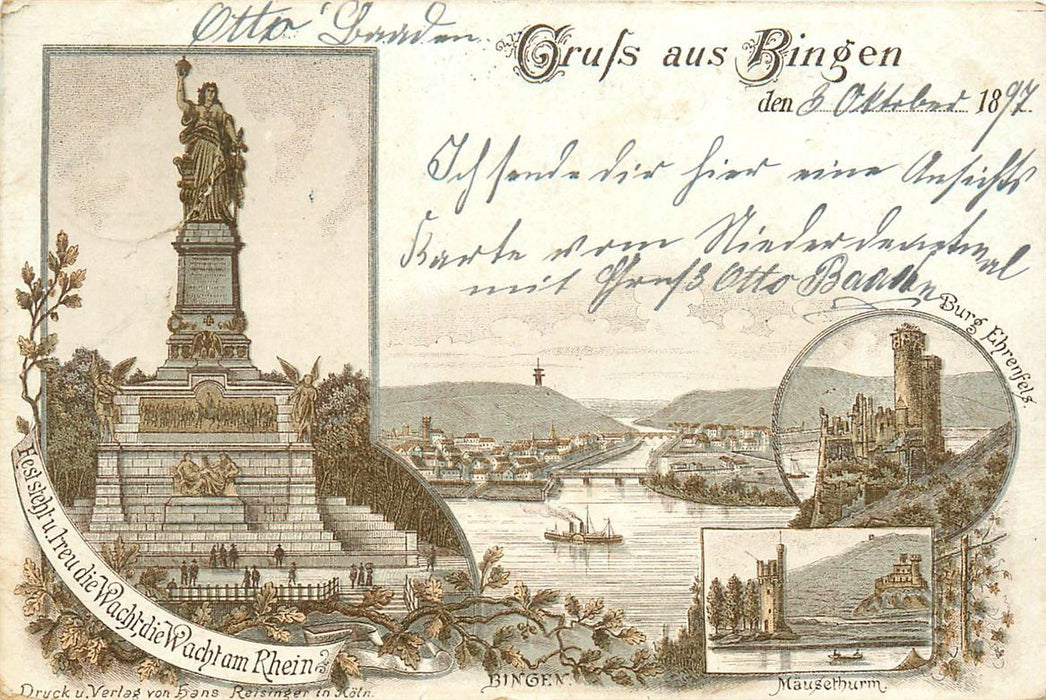 Otto Baaden.
Gruſs aus Bingen
den 3 Oktober 1897
Ich sende dir hier eine Ansichts
Karte vom Niederdenkmal
mit Gruß Otto Baaden
Burg Ehrenfels.
Fest steht u. treu die Wacht, die Wacht am Rhein
BINGEN.
Mäusethurm.
Druck u. Verlag von Hans Reisinger in Köln.